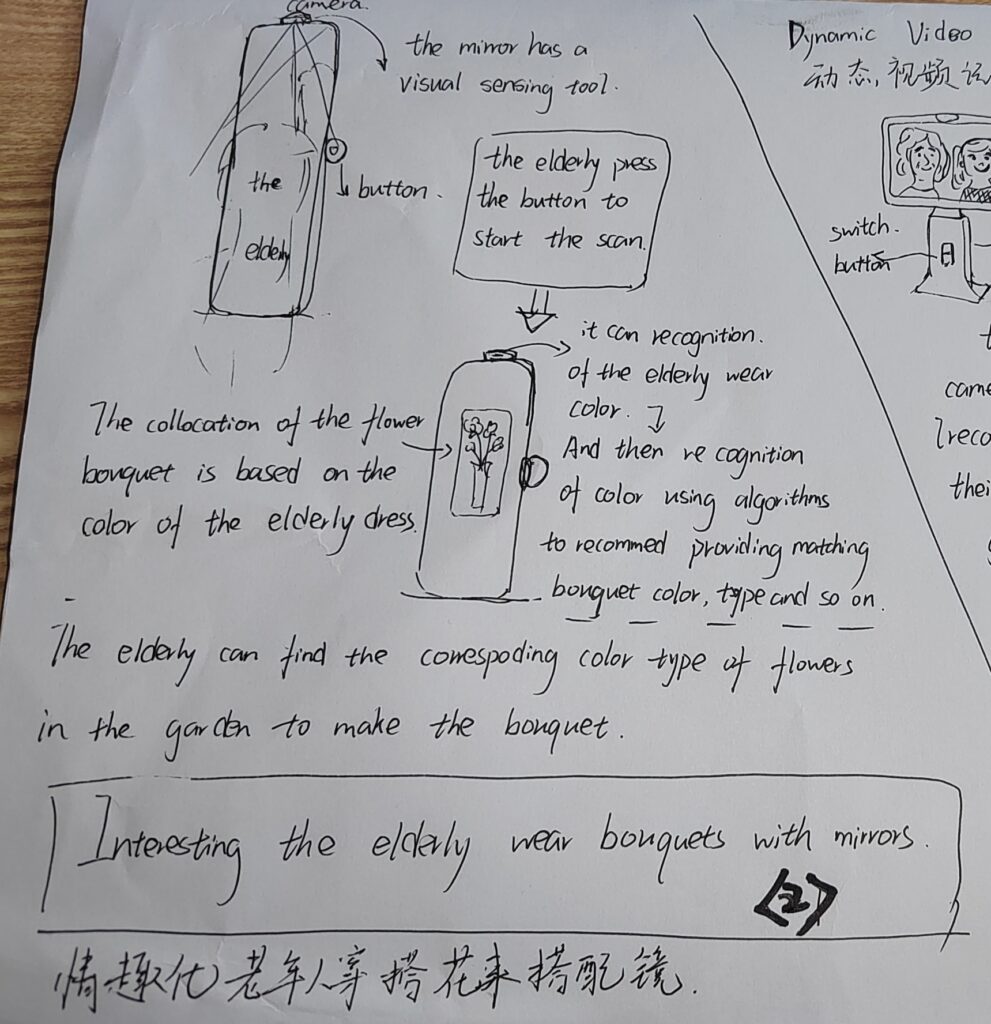 camera.
the mirror has a
visual sensing tool.
the
elderly
button.
the elderly press
the button to
start the scan.
it can recognition.
of the elderly wear
color.
And then re cognition
of color using algorithms
to recommed providing matching
bouquet color, type and so on.
The collocation of the flower
bouquet is based on the
color of the elderly dress.
The elderly can find the correspoding color type of flowers
in the garden to make the bouquet.
Interesting the elderly wear bouquets with mirrors.
<2>
情趣化老年人穿搭花束搭配镜.
Dynamic Video
动态,视频
switch.
button
came
thei